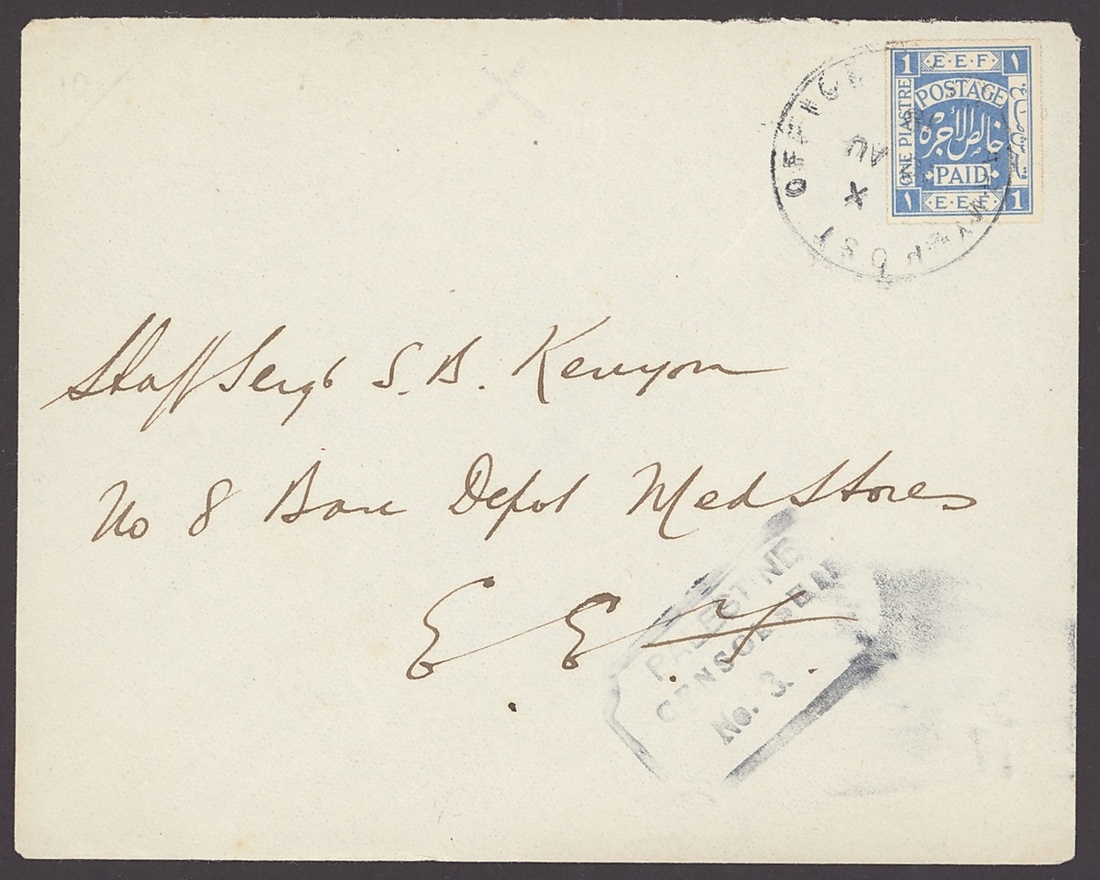 1 E·E·F ١
POSTAGE
ONE PIASTRE
خالص الأجرة
PAID
١ E·E·F 1
ARMY POST OFFICE
AU
X
Staff Sergt S. B. Kenyon
No 8 Base Depot Med Stores
E. E. F.
PALESTINE
CENSOR
No. 3.